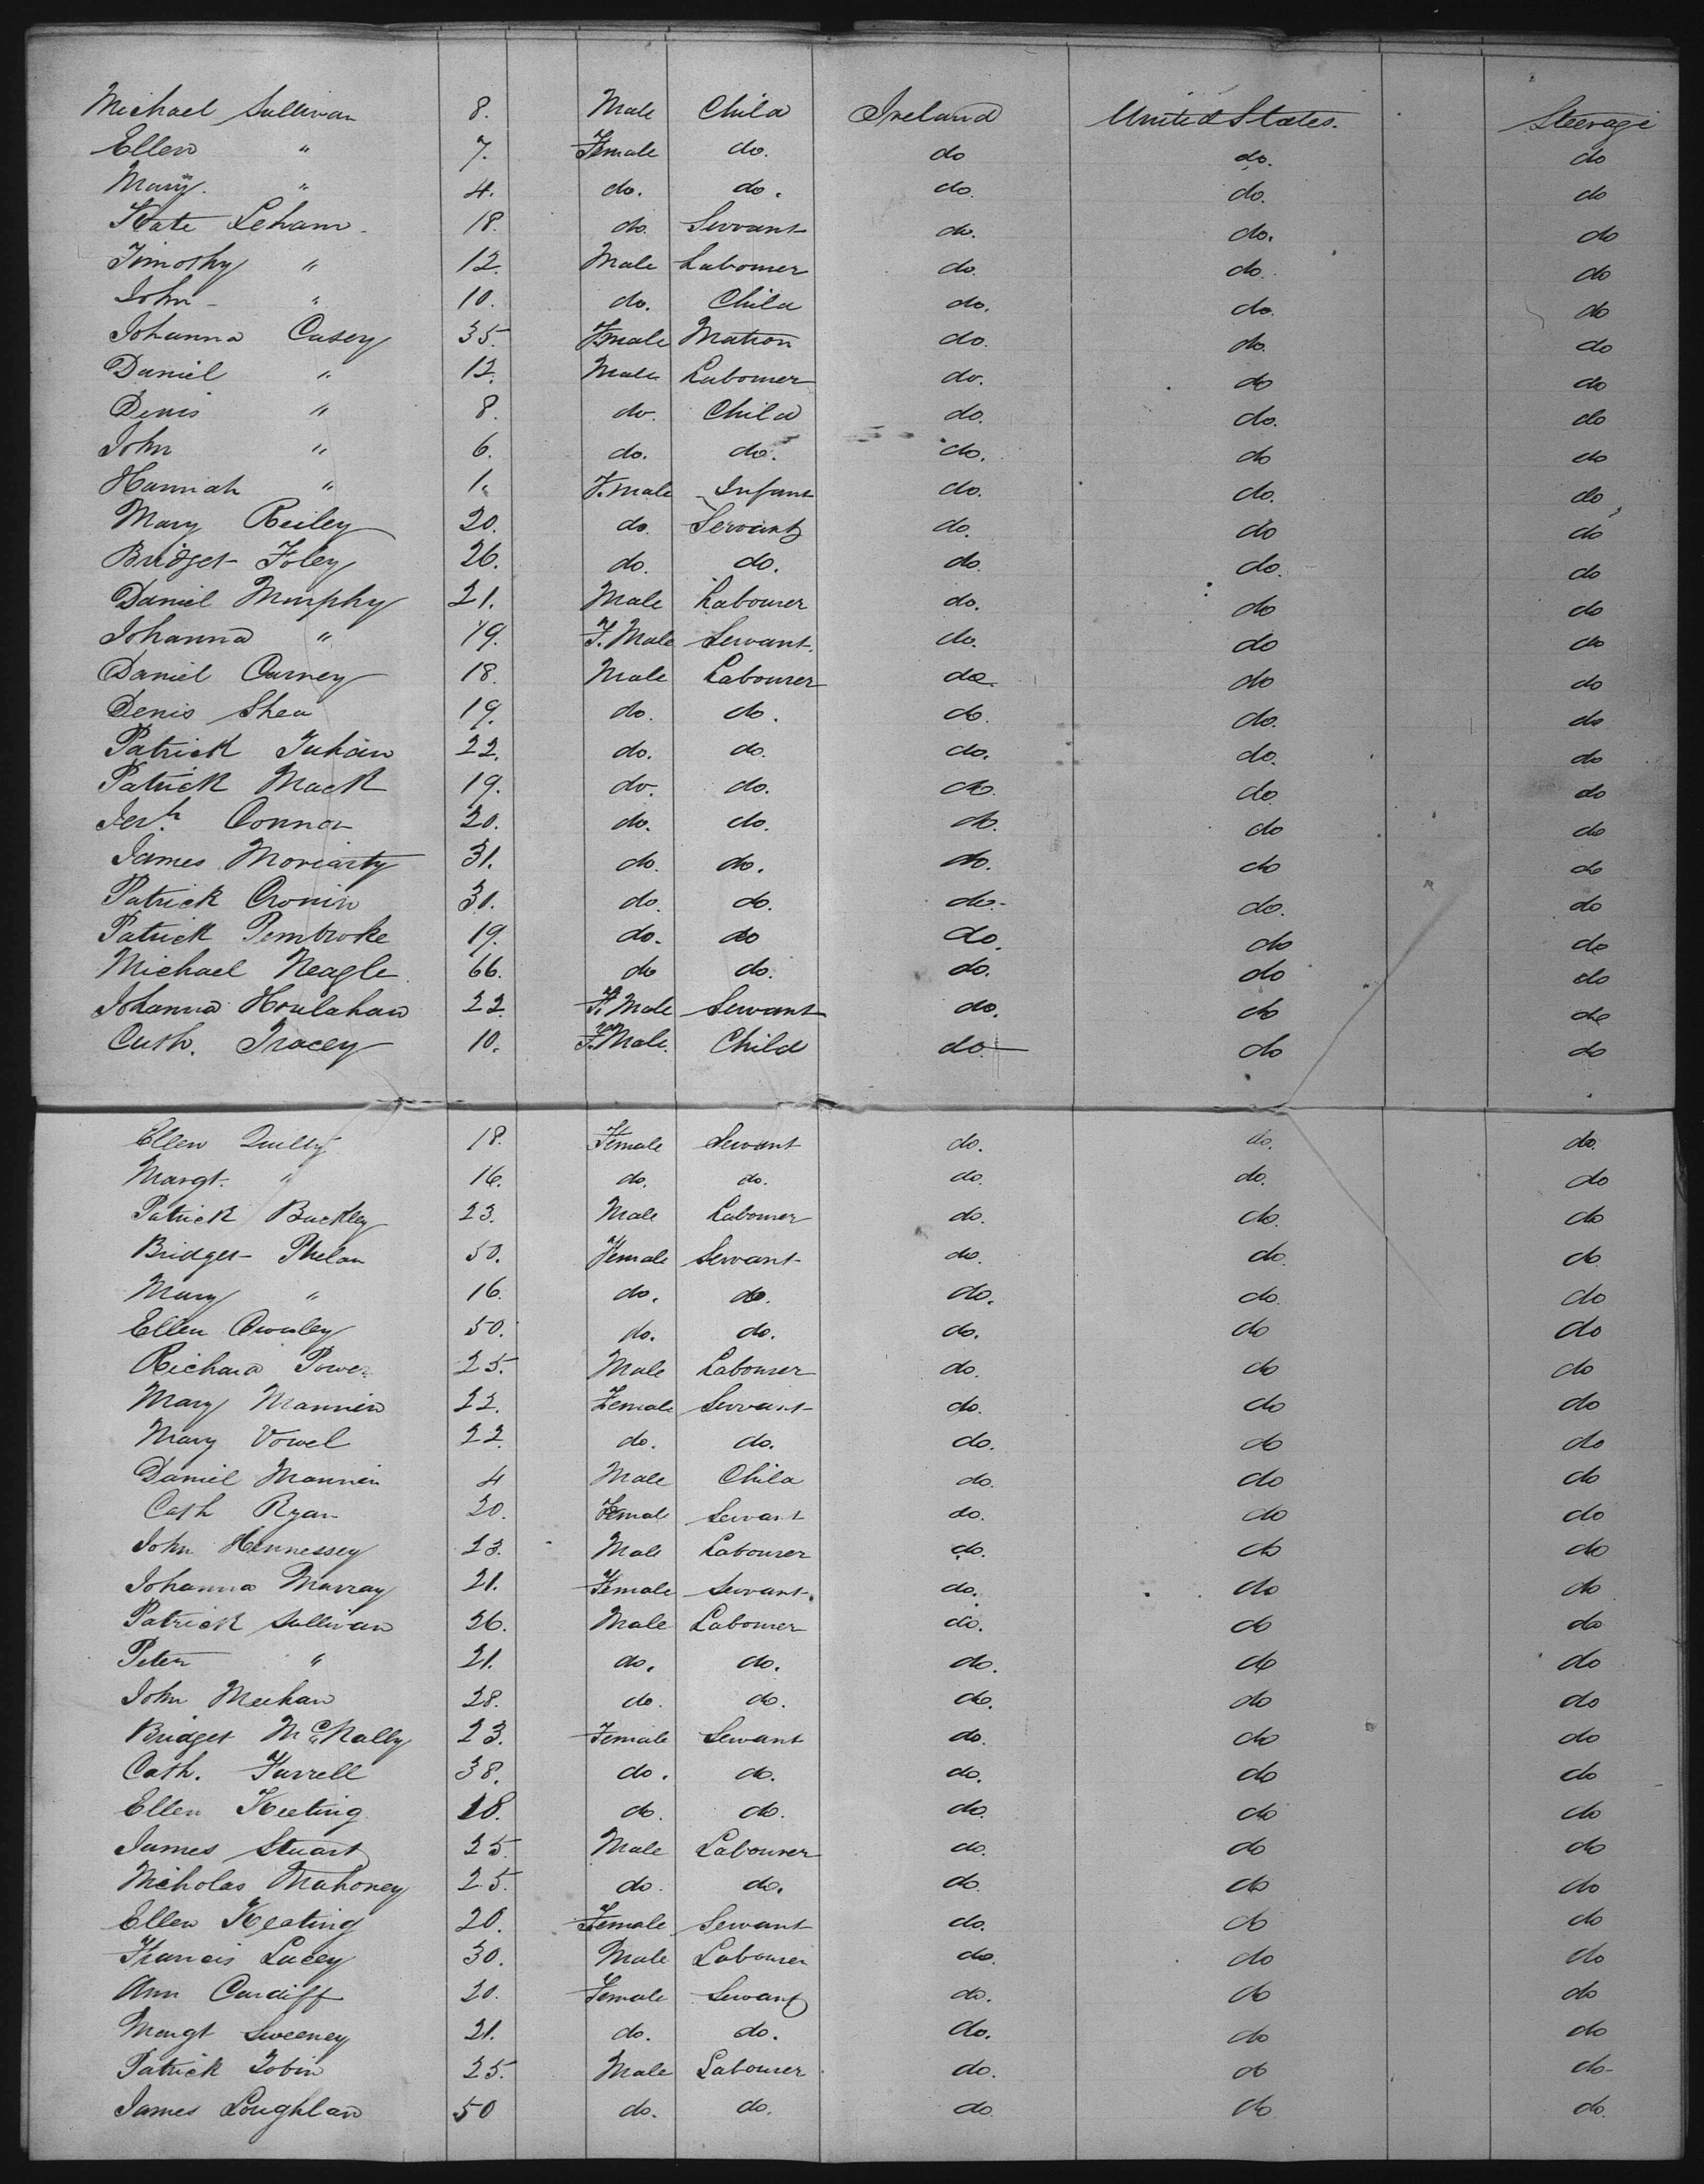 Michael Sullivan 8. Male Child Ireland United States. Steerage
Ellen " 7. Female do. do do. do
Mary. " 4. do. do. do. do. do
Kate Leham 18. do. Servant do. do. do
Timothy " 12. Male Labourer do. do. do
John " 10. do. Child do. do. do
Johanna Casey 35. Female Matron do. do. do
Daniel " 12. Male Labourer do. do do
Denis " 8. do. Child do. do. do
John " 6. do. do. do. do do
Hannah " 1. Female Infant do. do. do
Mary Reiley 20. do. Servant do. do do
Bridget Foley 26. do. do. do. do. do
Daniel Murphy 21. Male Labourer do. do do
Johanna " 19. F. Male Servant. do. do do
Daniel Carney 18. Male Labourer do. do do
Denis Shea 19. do. do. do. do. do
Patrick 22. do. do. do. do. do
Patrick Mack 19. do. do. do. do. do
Jerh. Connor 20. do. do. do. do do
James Moriarty 31. do. do. do. do do
Patrick Cronin 30. do. do. do. do. do
Patrick Pembroke 19. do. do do. do do
Michael Neagle 66. do do. do. do do
Johanna Houlahan 22. F. Male Servant do. do do
Cath. Tracey 10. F. Male. Child do. do do
Ellen Quilty 18. Female Servant do. do. do.
Margt. " 16. do. do. do. do. do
Patrick Buckley 23. Male Labourer do. do. do
Bridget Phelan 50. Female Servant do. do. do
Mary " 16. do. do. do. do. do
Ellen 50. do. do. do. do do
Richard Power 25. Male Labourer do. do do
Mary Mannin 22. Female Servant do. do do
Mary Vowel 22. do. do. do. do do
Daniel Mannin 4 Male Child do. do do
Cath Ryan 20. Female Servant do. do do
John Hennessey 23. Male Labourer do. do do
Johanna Murray 21. Female Servant. do. do do
Patrick Sullivan 26. Male Labourer do. do do
Peter " 21. do. do. do. do do
John Meehan 28. do. do. do. do do
Bridget McNally 23. Female Servant do. do do
Cath. Farrell 38. do. do. do. do do
Ellen Keeting 18. do. do. do. do do
James Stuart 25. Male Labourer do. do do
Nicholas Mahoney 25. do. do. do. do do
Ellen Keating 20. Female Servant do. do do
Francis Lacey 30. Male Labourer do. do do
Ann Cardiff 20. Female Servant do. do do
Margt Sweeney 21. do. do. do. do do
Patrick Tobin 25. Male Labourer do. do do
James Loughlan 50 do. do. do do do.